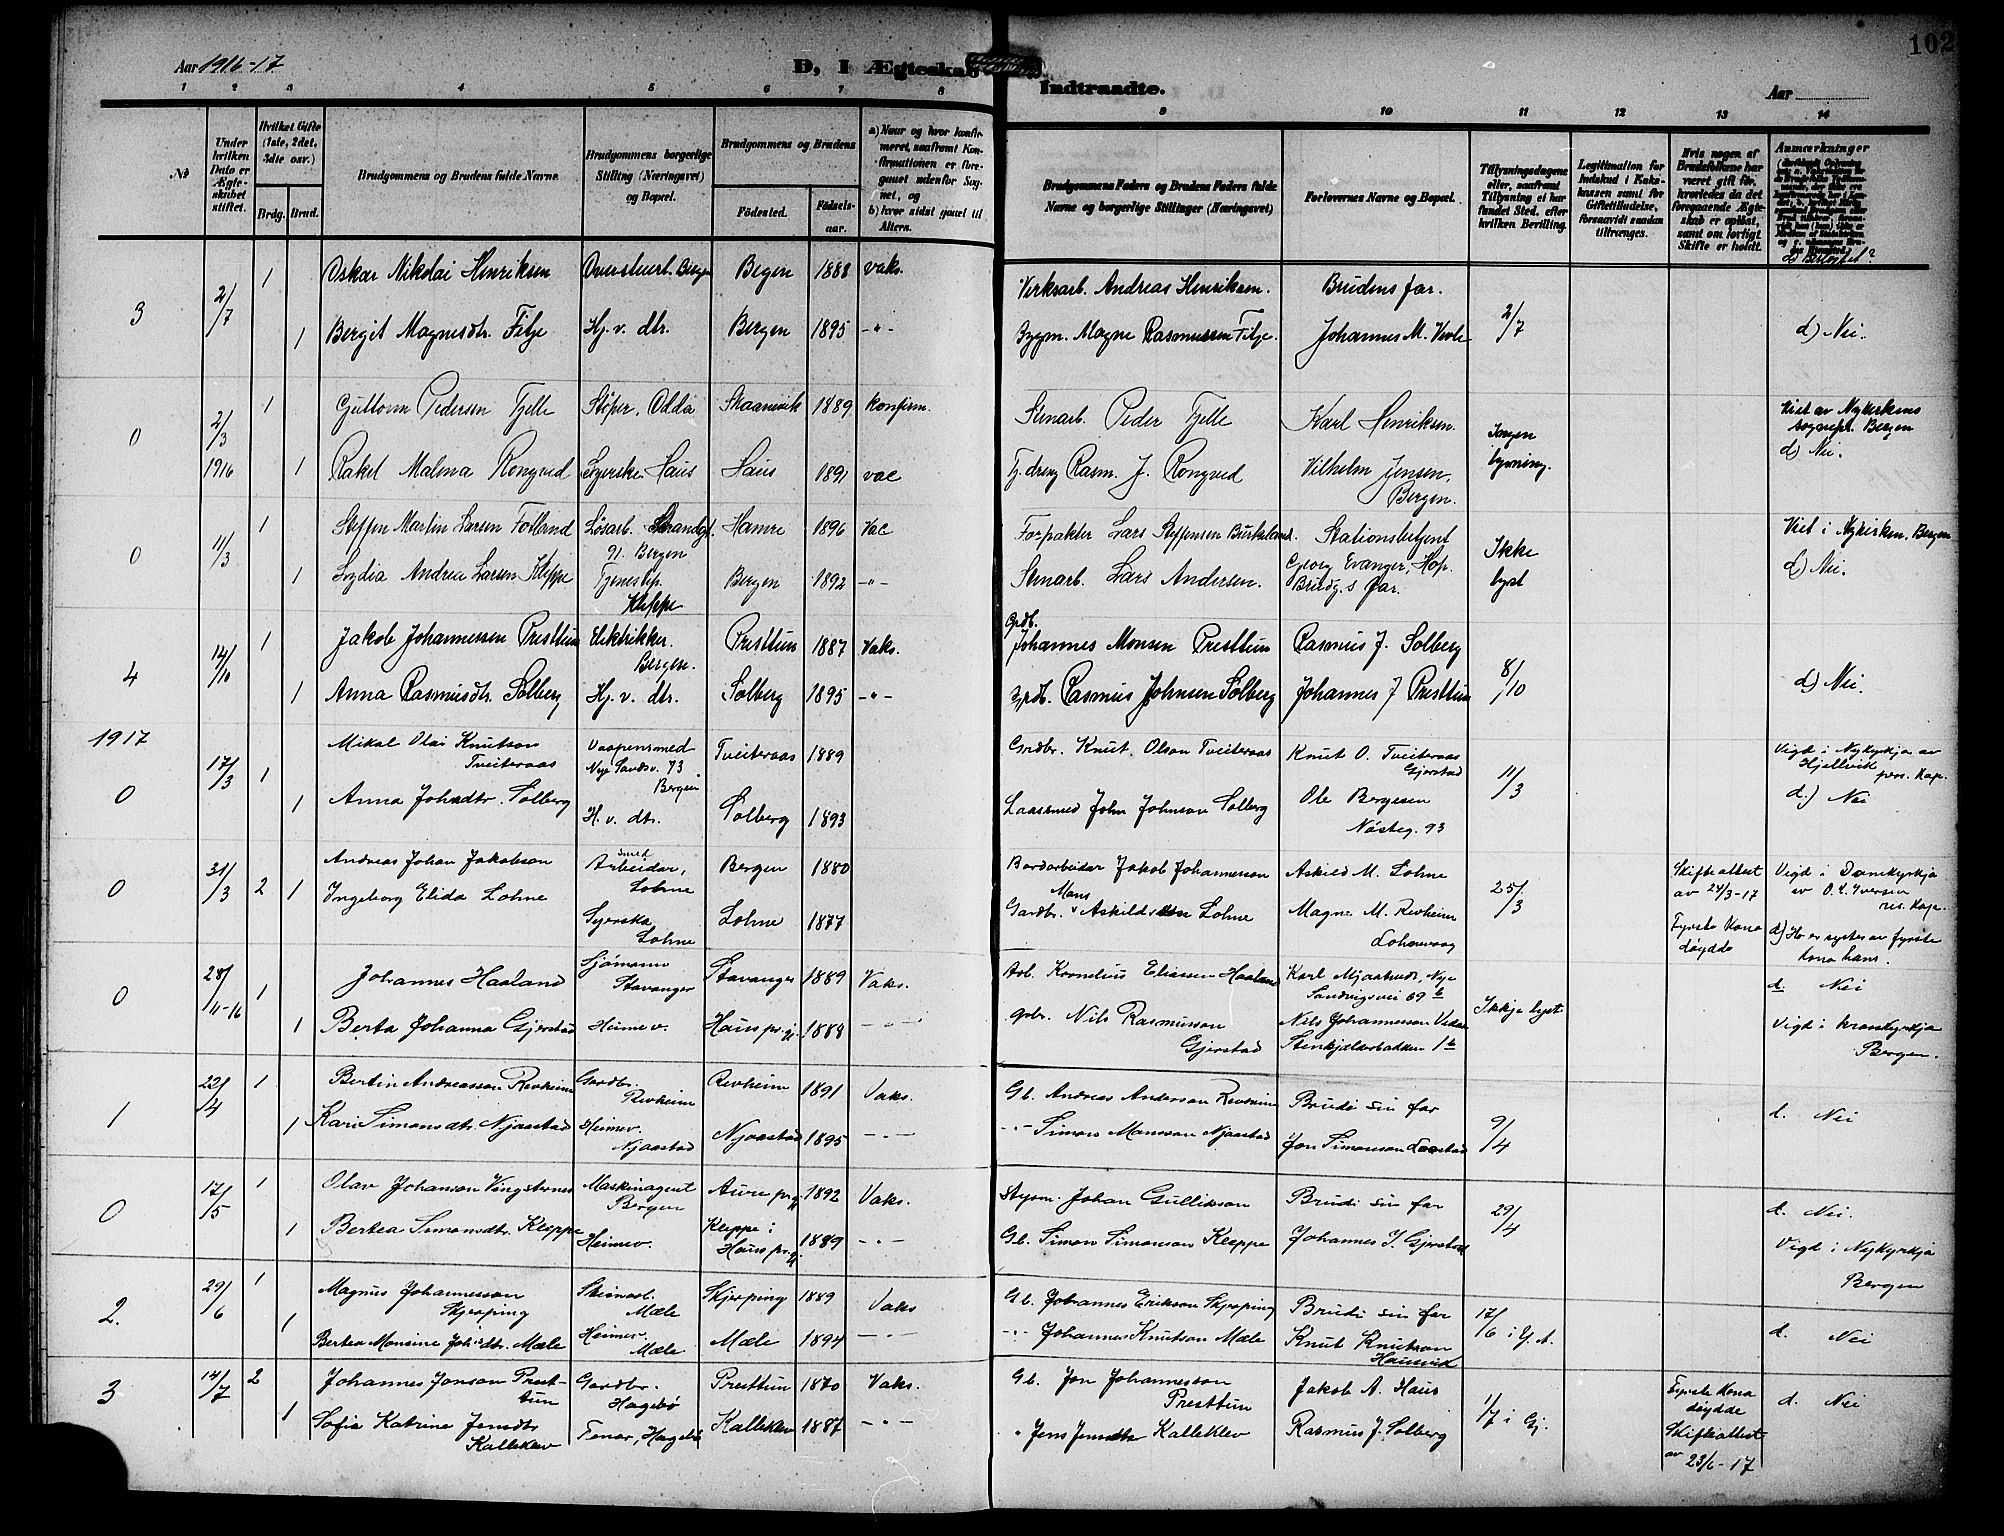 Aar 1916-17
D, I Ægteskab
Indtraadte.
Aar
102
1 2 3 4 5 6 7 8 9 10 11 12 13 14
No
Under hvilken Dato er Ægteskabet stiftet.
Hvilket Gifte (1ste, 2det, 3die osv.)
Brdg. Brud.
Brudgommens og Brudens fulde Navne.
Brudgommens borgerlige Stilling (Næringsvei) og Bopæl.
Brudgommens og Brudens
Fødested.
Fødselsaar.
a) Naar og hvor konfirmeret, saafremt Konfirmationen er foregaaet udenfor Sognet, og
b) hvor sidst gaaet til Alters.
Brudgommens Faders og Brudens Faders fulde Navne og borgerlige Stillinger (Næringsvei)
Forlovernes Navne og Bopæl.
Tillysningsdagene eller, saafremt Tillysning ei har fundet Sted, efter hvilken Bevilling.
Legitimation for Indskud i Enkekassen samt for Giftetilladelse, forsaavidt saadan tiltrænges.
Hvis nogen af Brudefolkene har været gift før, hvorledes da det foregaaende Ægteskab er opløst, samt om lovligt Skifte er holdt.
Anmærkninger
d) Beslegtet?
3
2/7
1
Oskar Nikolai Henriksen
Bergen
Begen
1888
vaks.
Verksarb. Andreas Henriksen.
Brudens far.
2/7
1
Bergit Magnesdtr. Fitje
Hj. v. dtr.
Bergen
1895
-"-
Magne Rasmussen Fitje.
Johannes M. Vevle
d) Nei.
0
2/3 1916
1
Guttorm Pedersen Fjelle
Støper, Odda
Skaanevik
1889
konfirm.
Stenarb. Peder Fjelle
Karl Henriksen.
Ingen lysning.
Viet av Nykirkens sognepr. Bergen
1
Rakel Malena Rongved
Syerske. Haus
Haus
1891
vac
Rasm. J. Rongved
Vilhelm Jensen, Bergen.
d) Nei.
0
11/3
1
Steffen Martin Larsen Fotland
Løsarb. Strandgt. 91. Bergen
Hamre
1896
Vac
Forpakter Lars Steffensen Birkeland.
Stationsbetjent Georg Evanger, Hop.
Ikke lyst
Viet i Nykirken. Bergen
1
Lydia Andrea Larsen Kleppe
Tjenestep. Kleppe
Bergen
1892
-"-
Stenarb. Lars Andersen.
Brudg.s far.
d) Nei.
4
14/10
1
Jakob Johannessen Presttun
Elektrikker. Bergen.
Presttun
1887
Vaks.
Grdb. Johannes Monsen Presttun
Rasmus J. Solberg
8/10
1
Anna Rasmusdtr. Solberg
Hj. v. dtr.
Solberg
1895
-"-
Grdb. Rasmus Johnsen Solberg
Johannes J Presttun
d) Nei.
1917
0
17/3
1
Mikal Olai Knutson Tveiteraas
Vaapensmed Nye Sandsv. 73 Bergen
Tveiteraas
1889
Gardbr. Knut Olson Tveiteraas
Knut O. Tveiteraas Gjerstad
11/3
Vigd i Nykyrkja av Hjellvik pers. Kap.
1
Anna Johndtr. Solberg
H. v. dtr.
Solberg
1893
Laassmed John Johnson Solberg
Ole Bergesen Nøsteg. 93
d.) Nei
0
31/3
2
1
Andreas Johan Jakobson
Arbeidar, Lohne
Bergen
1880
Bordarbeidar Jakob Johannesson
Askild M. Lohne
25/3
Skifteattest av 24/3-17
Vigd i Domkyrkja av O. L. Iversen res. Kap.
Ingeborg Elida Lohne
Syerska, Lohne
Lohne
1877
Gardbr. Mons Askildson Lohne
Magne M. Revheim Lohavaag
Fyrste Kona døydde
d) Ho er syster av fyrste kona hans.
0
28/11-16
1
Johannes Haaland
Sjømann Stavanger
Stavanger
1889
Vaks.
Arb. Kornelius Eliassen Haaland
Karl Mjaatvedt, Nye Sandvigsvei 69 b
Ikkje lyst
d. Nei
1
Berta Johanna Gjerstad
Heimev.
Haus pr.gj.
1888
-"-
Gbr. Nils Rasmusson Gjerstad
Nils Johannesson
Stenkjelderbakken 1 b
Vigd i Krosskyrkja Bergen.
1
22/4
1
Bertin Andreasson Revheim
Gardbr. Revheim
Revheim
1891
Vaks.
Gb. Andreas Anderson Revheim
Brudi sin far
9/4
d. Nei
1
Kari Simonsdtr. Njaastad
Heimev. Njaastad
Njaastad
1895
-"-
-"- Simon Monsson Njaastad
Jon Simonson Laastad
0
17/5
1
Olav Johanson Vingsternes
Maskinagent Bergen
Aure pr.gj
1892
Vaks.
Styrm. Johan Gullikson
Brudi sin far
29/4
d. Nei.
1
Bertea Simonsdtr. Kleppe
Heimev.
Kleppe i Haus pr.gj
1889
-"-
Gb. Simon Simonson Kleppe
Johannes J. Gjerstad
Vigd i Nykyrkja Bergen
2.
29/6
1
Magnus Johannesson Skjerping
Steinarb. Mæle
Skjerping
1889
Vaks
Gb. Johannes Erikson Skjerping
Brudi sin far
17/6 i Gj.
1
Bertea Monsine Joh.dtr. Mæle
Heimev. Mæle
Mæle
1894
-"-
-"- Johannes Knutson Mæle
Knut Knutson Hausvik
d. Nei
3
14/7
2
Johannes Jonson Presttun
Gardbr. Hagebø
Presttun
1870
Vaks.
Gb. Jon Johannesson Presttun
Jakob A. Haus
1/7 i Gj.
Fyrste Kona døydde
d. Nei
1
Sofia Katrine Jensdtr Kalleklev
Tenar, Hagebø
Kalleklev
1887
-"-
" Jens Jenson Kalleklev
Rasmus J. Solberg
Skifteattest av 23/6-17